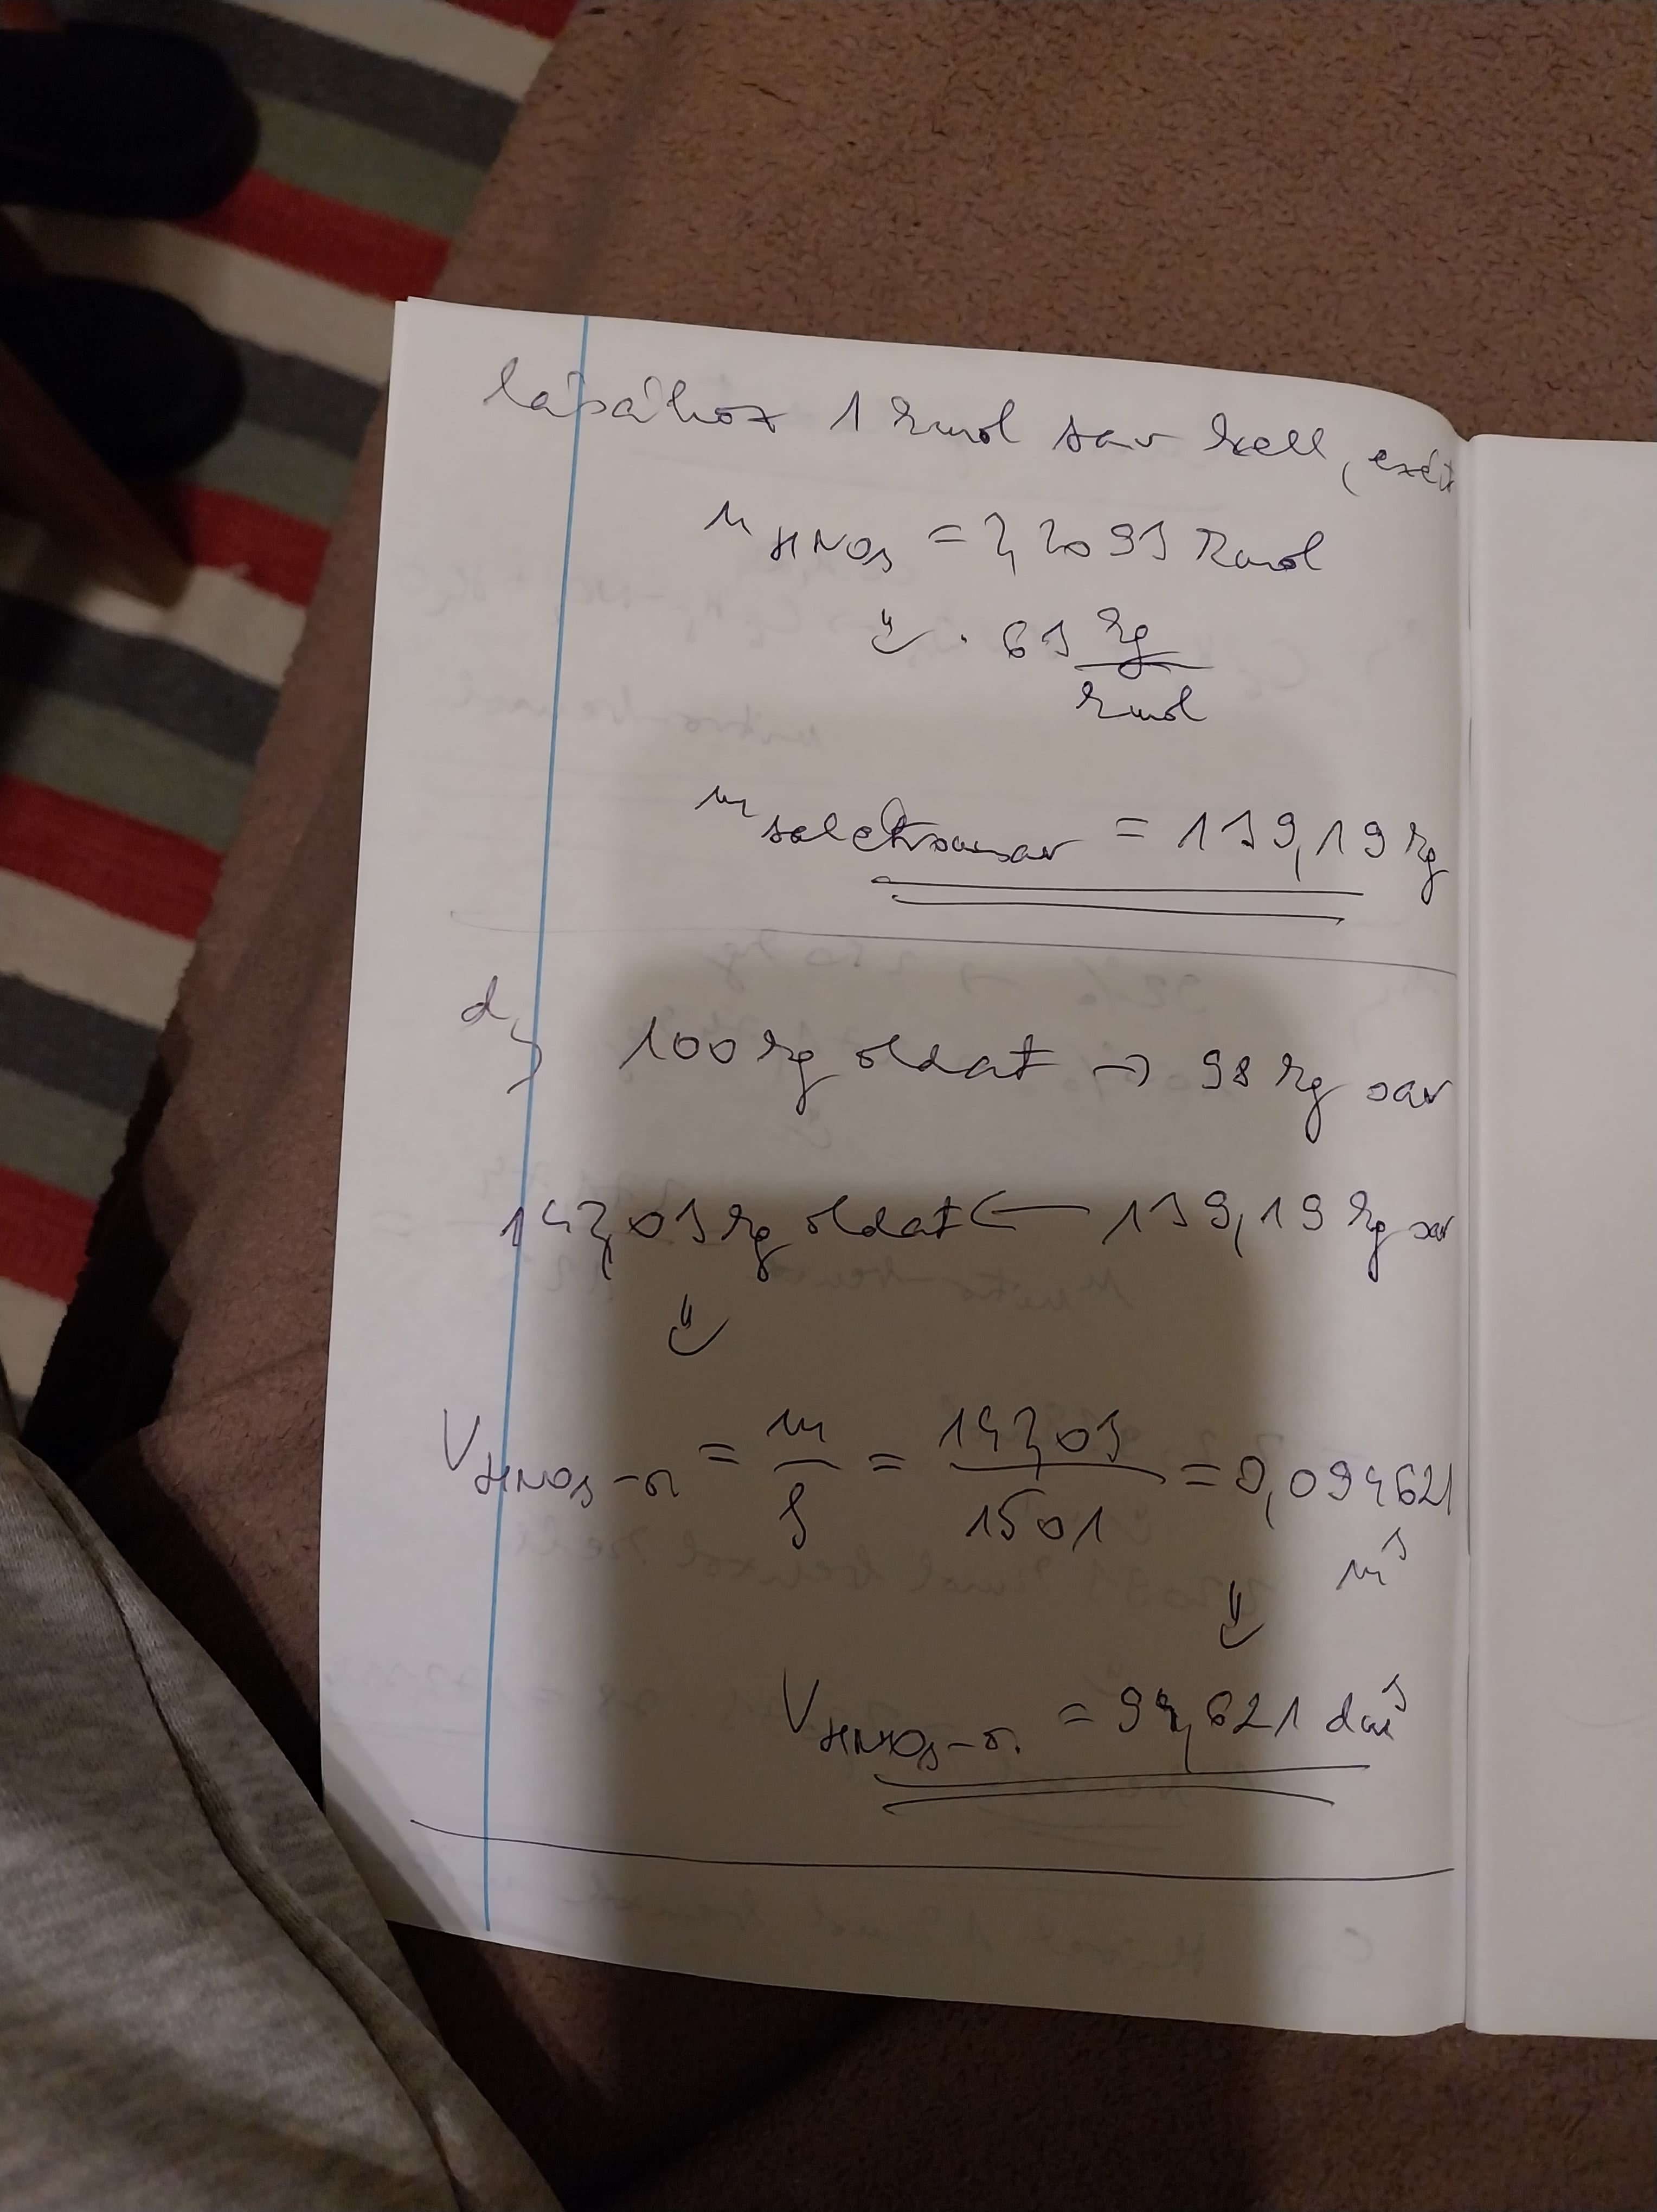 lásához 1 kmol sav kell, ezért
nHNO3 = 2,2093 kmol
⇓ · 63 kg/kmol
msalétromsav = 139,19 kg
d,
100 kg oldat → 98 kg sav
142,03 kg oldat ← 139,19 kg sav
⇓
VHNO3-o. = m/ρ = 142,03/1501 = 0,094621
m³
⇓
VHNO3-o. = 94,621 dm³